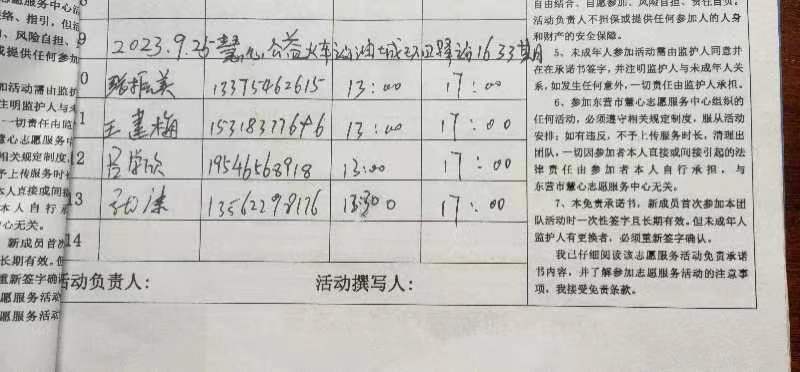 愿服务中心
络、指引，但
、风险自担、
或提供任何参加
加活动需由监护
注明监护人与未
一切责任由监
慧心志愿服务中
相关规定制度，
予上传服务时
本人直接或间接
本人自行承
心无关。
新成员首次
长期有效。但
重新签字确
愿服务活动
愿服务活动
2023.9.25 慧心公益火车站油城 驿站1633期
0 张振美 13375462615 13:00 17:00
1 王建梅 15318377646 13:00 17:00
12 吕学欣 19546568918 13:00 17:00
13 13562298176 13:30 17:00
14
活动负责人： 活动撰写人：
自由结合、自愿参加、风险自担、责任自负。
活动负责人不担保或提供任何参加人的人身
和财产的安全保障。
5、未成年人参加活动需由监护人同意并
在在承诺书签字，并注明监护人与未成年人关
系，如发生任何意外，一切责任由监护人承担。
6、参加东营市慧心志愿服务中心组织的
任何活动，必须遵守相关规定制度，服从活动
安排；如有违反，不予上传服务时长，清理出
团队，一切因参加者本人直接或间接引起的法
律责任由参加者本人自行承担，与
东营市慧心志愿服务中心无关。
7、本免责承诺书，新成员首次参加本团
队活动时一次性签字且长期有效。但未成年人
监护人有更换者，必须重新签字确认。
我已仔细阅读该志愿服务活动免责承诺
书内容，并了解参加志愿服务活动的注意事
项，我接受免责条款。